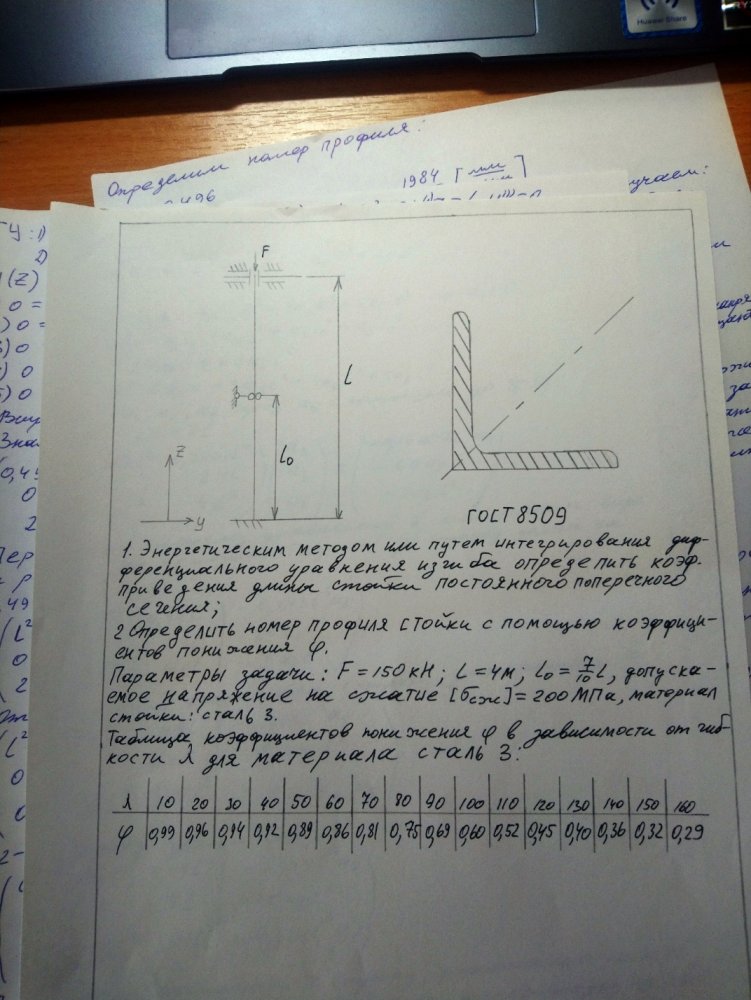 Huawei Share
Определим номер профиля:
1984
0,496
F
L
L₀
z
y
ГОСТ8509
1. Энергетическим методом или путем интегрирования диф-
ференциального уравнения изгиба определить коэф.
приведения длины стойки постоянного поперечного
сечения;
2 Определить номер профиля стойки с помощью коэффици-
ентов понижения φ.
Параметры задачи: F = 150 кН; L = 4м; L₀ = 7/10 L, допуска-
емое напряжение на сжатие [σсж] = 200 МПа, материал
стойки: сталь 3.
Таблица коэффициентов понижения φ в зависимости от гиб-
кости λ для материала сталь 3.
λ 10 20 30 40 50 60 70 80 90 100 110 120 130 140 150 160
φ 0,99 0,96 0,94 0,92 0,89 0,86 0,81 0,75 0,69 0,60 0,52 0,45 0,40 0,36 0,32 0,29